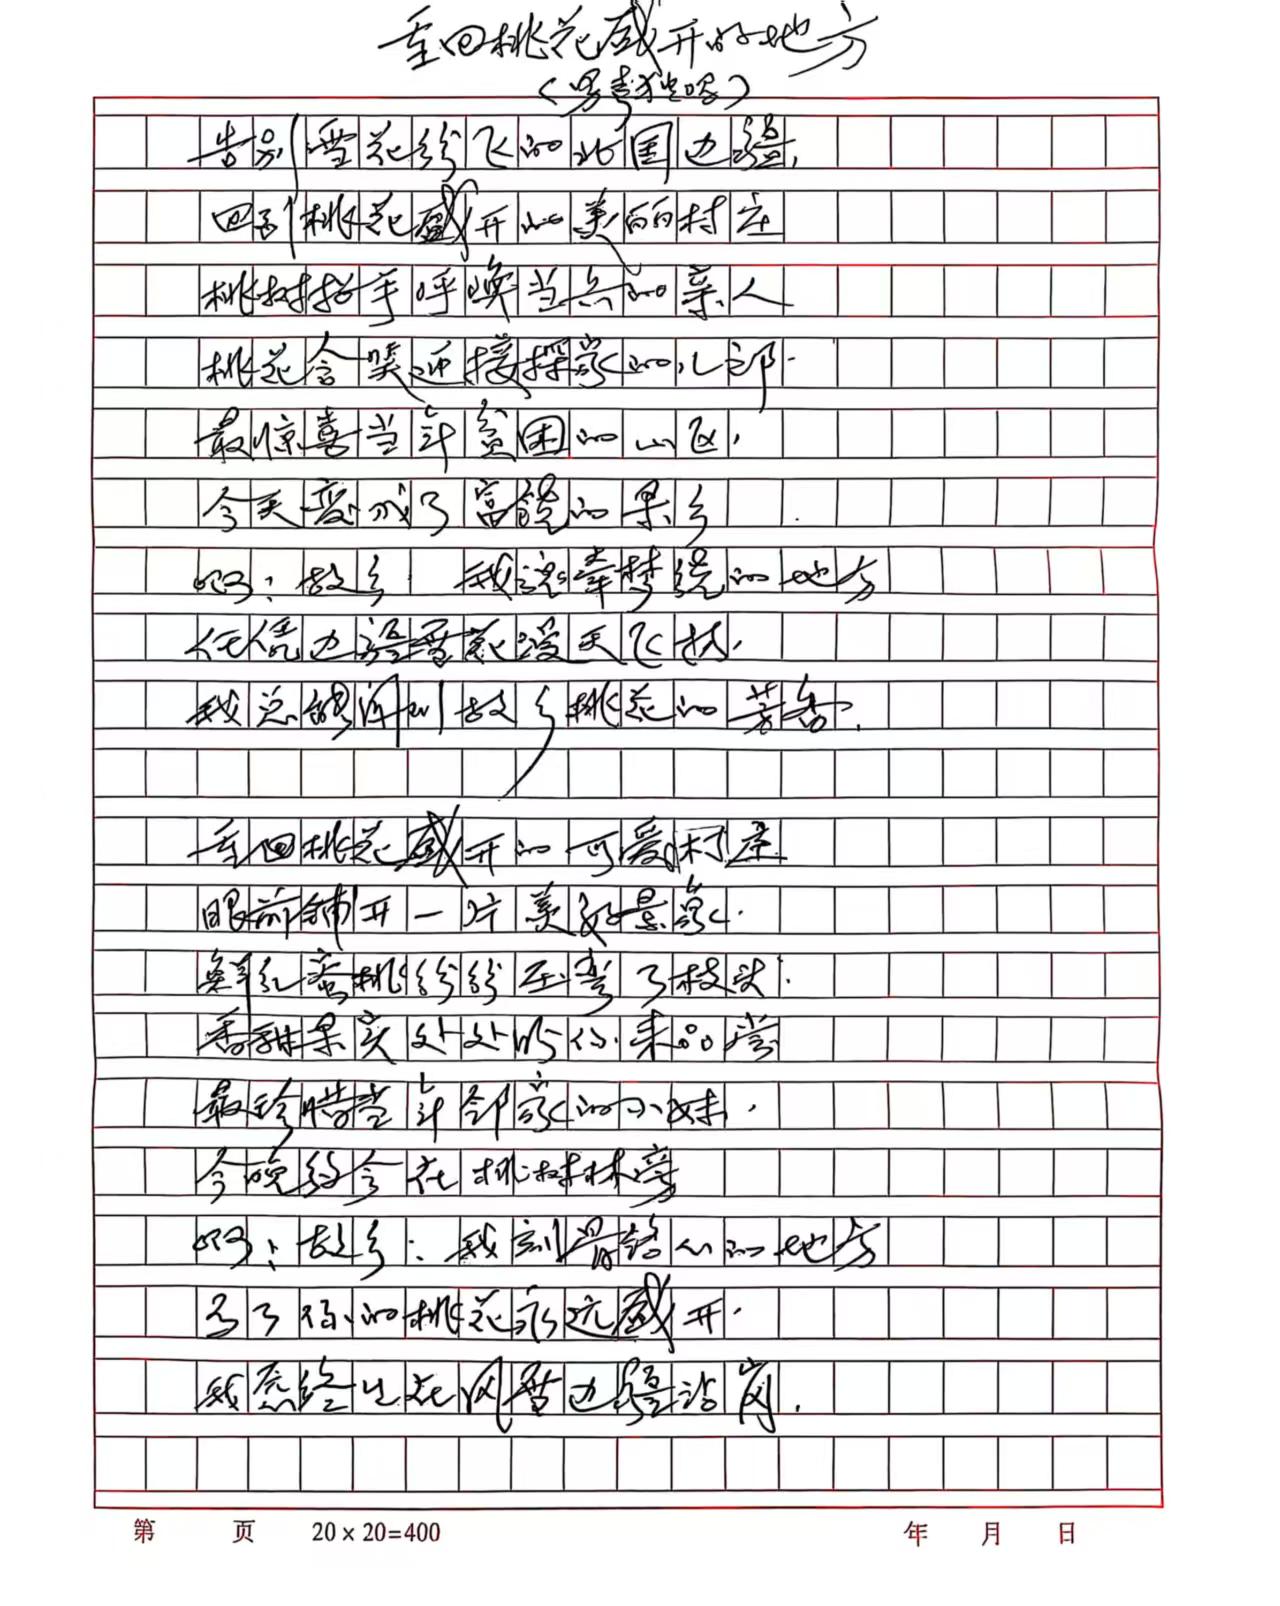 重回桃花盛开的地方
(男声独唱)
告别雪花纷飞的北国边疆,
回到桃花盛开的美丽村庄
桃树招手呼唤当兵的亲人
桃花含笑迎接探家的儿郎.
最惊喜当年贫困的山区,
今天变成了富饶的果乡
啊:故乡 我魂牵梦绕的地方
任凭边疆雪花漫天飞扬,
我总能闻到故乡桃花的芳香.
重回桃花盛开的可爱村庄
眼前铺开一片美好景象.
鲜红蜜桃纷纷压弯了枝头.
香甜果实处处盼你来品尝
最珍惜当年邻家的小妹.
今晚约会在桃树林旁
啊:故乡:我刻骨铭心的地方
为了你的桃花永远盛开.
我愿终生在风雪边疆站岗.
第 页 20×20=400 年 月 日